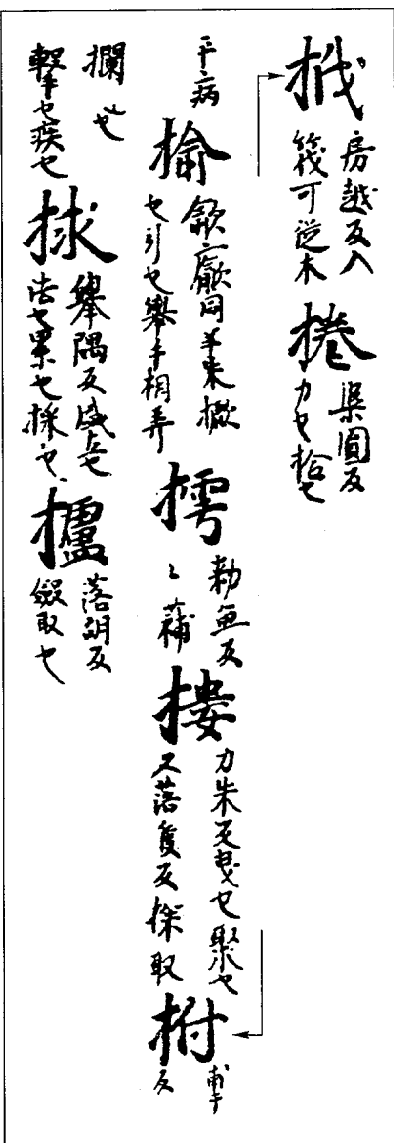 栰房越反入
筏可從木
捲渠圓反
力也拾也
平病
揄歈二厰同羊朱撤
也引也轝手相弄
摴勅魚反
〻蒱
摟力朱反曳也聚也
又落隻反採取
拊甫于
反
攔也
擊也疾也
捄舉隅反盛土也
法也累也採也
攎落胡反
斂取也